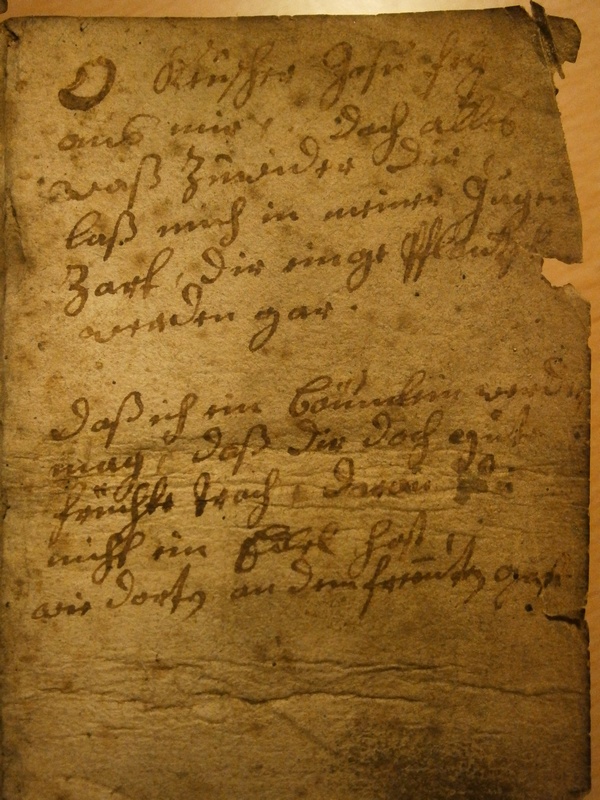 O Keuscher Jesu feg
aus mir, doch alles
waß Zuwider dir,
laß mich in meiner Jugen
Zart, dir einge Pflantz
werden gar.
daß ich ein böumlein werde
mag, daß dir doch gute
früchte trag,
nicht ein Edel hast
wie dort an dem